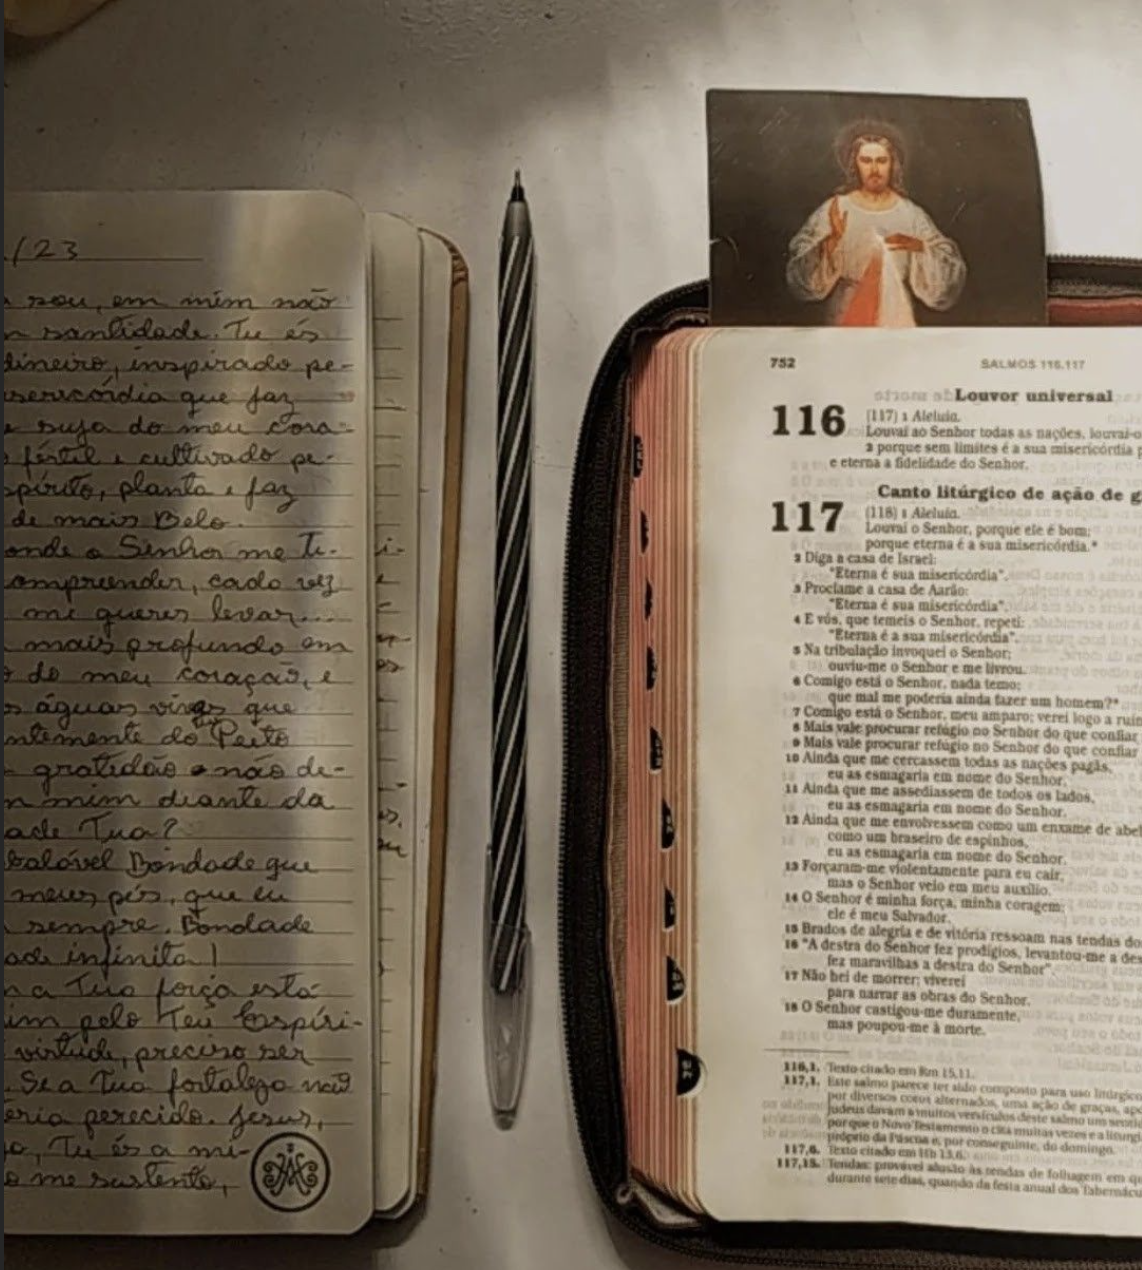 /23
sou, em mim não
santidade. Tu és
inspirado pe-
que faz
suja do meu cora-
fértil e cultivado pe-
planta e faz
de mais Belo.
onde o Senhor me
cada vez
me queres levar...
mais profundo em
do meu coração, e
águas vivas que
do Teu Peito
gratidão e não de-
mim diante da
Tua?
Bondade que
meus pés, que eu
sempre. Bondade
infinita!
a Tua força está
pelo Teu Espíri-
virtude, preciso ser
Se a Tua fortaleza não
perecido. Jesus,
Tu és a mi-
me sustento,
752
SALMOS 116.117
Louvor universal
116
(117) 1 Aleluia.
Louvai ao Senhor todas as nações, louvai-o
2 porque sem limites é a sua misericórdia p
e eterna a fidelidade do Senhor.
Canto litúrgico de ação de g
117
(118) 1 Aleluia.
Louvai o Senhor, porque ele é bom;
porque eterna é a sua misericórdia.*
2 Diga a casa de Israel:
"Eterna é sua misericórdia".
3 Proclame a casa de Aarão:
"Eterna é sua misericórdia".
4 E vós, que temeis o Senhor, repeti:
"Eterna é a sua misericórdia".
5 Na tribulação invoquei o Senhor;
ouviu-me o Senhor e me livrou.
6 Comigo está o Senhor, nada temo;
que mal me poderia ainda fazer um homem?*
7 Comigo está o Senhor, meu amparo; verei logo a ruín
8 Mais vale procurar refúgio no Senhor do que confiar
9 Mais vale procurar refúgio no Senhor do que confiar
10 Ainda que me cercassem todas as nações pagãs,
eu as esmagaria em nome do Senhor.
11 Ainda que me assediassem de todos os lados,
eu as esmagaria em nome do Senhor.
12 Ainda que me envolvessem como um enxame de abel
como um braseiro de espinhos,
eu as esmagaria em nome do Senhor.
13 Forçaram-me violentamente para eu cair,
mas o Senhor veio em meu auxílio.
14 O Senhor é minha força, minha coragem;
ele é meu Salvador.
15 Brados de alegria e de vitória ressoam nas tendas do
16 "A destra do Senhor fez prodígios, levantou-me a des
fez maravilhas a destra do Senhor".
17 Não hei de morrer; viverei
para narrar as obras do Senhor.
18 O Senhor castigou-me duramente,
mas poupou-me à morte.
116,1. Texto citado em Rm 15,11.
117,1. Este salmo parece ter sido composto para uso litúrgico
por diversos coros alternados, uma ação de graças, ap
judeus davam a muitos versículos deste salmo um senti
porque o Novo Testamento o cita muitas vezes e a liturgi
próprio da Páscoa e, por conseguinte, do domingo.
117,6. Texto citado em Hb 13,6.
117,15. Tendas: provável alusão às tendas de folhagem em qu
durante sete dias, quando da festa anual dos Tabernácu